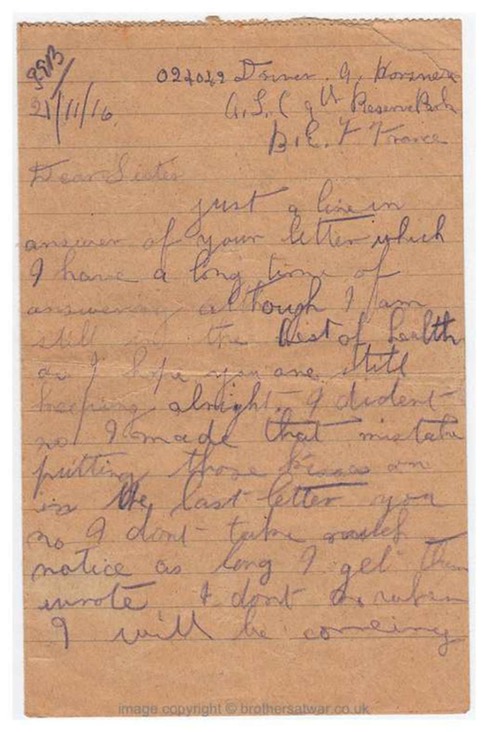 21/11/16
024042 Driver.
A.S.C 9th Reserve Park
B.E.F France
Dear Sister
just a line in
answer of your letter which
I have a long time of
answering although I am
still in the best of health
as I hope you are still
keeping alright. I dident
no I made that mistake
putting those kisses on
in the last letter you
no I dont take much
notice as long I get them
wrote I dont no when
I will be comeing
image copyright © brothersatwar.co.uk